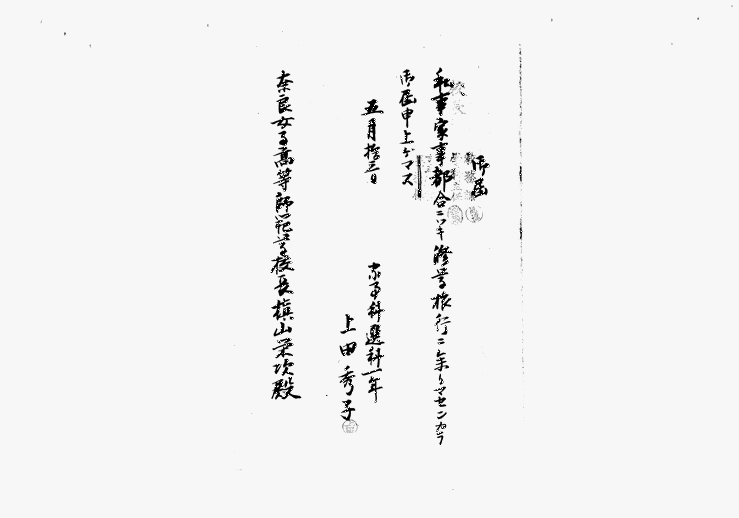 御届
私事家事都合ニツキ修学旅行ニ参リマセンカラ
御届申上ゲマス
五月拾三日
家事科選科一年
上田秀子
奈良女子高等師範学校長槇山栄次殿